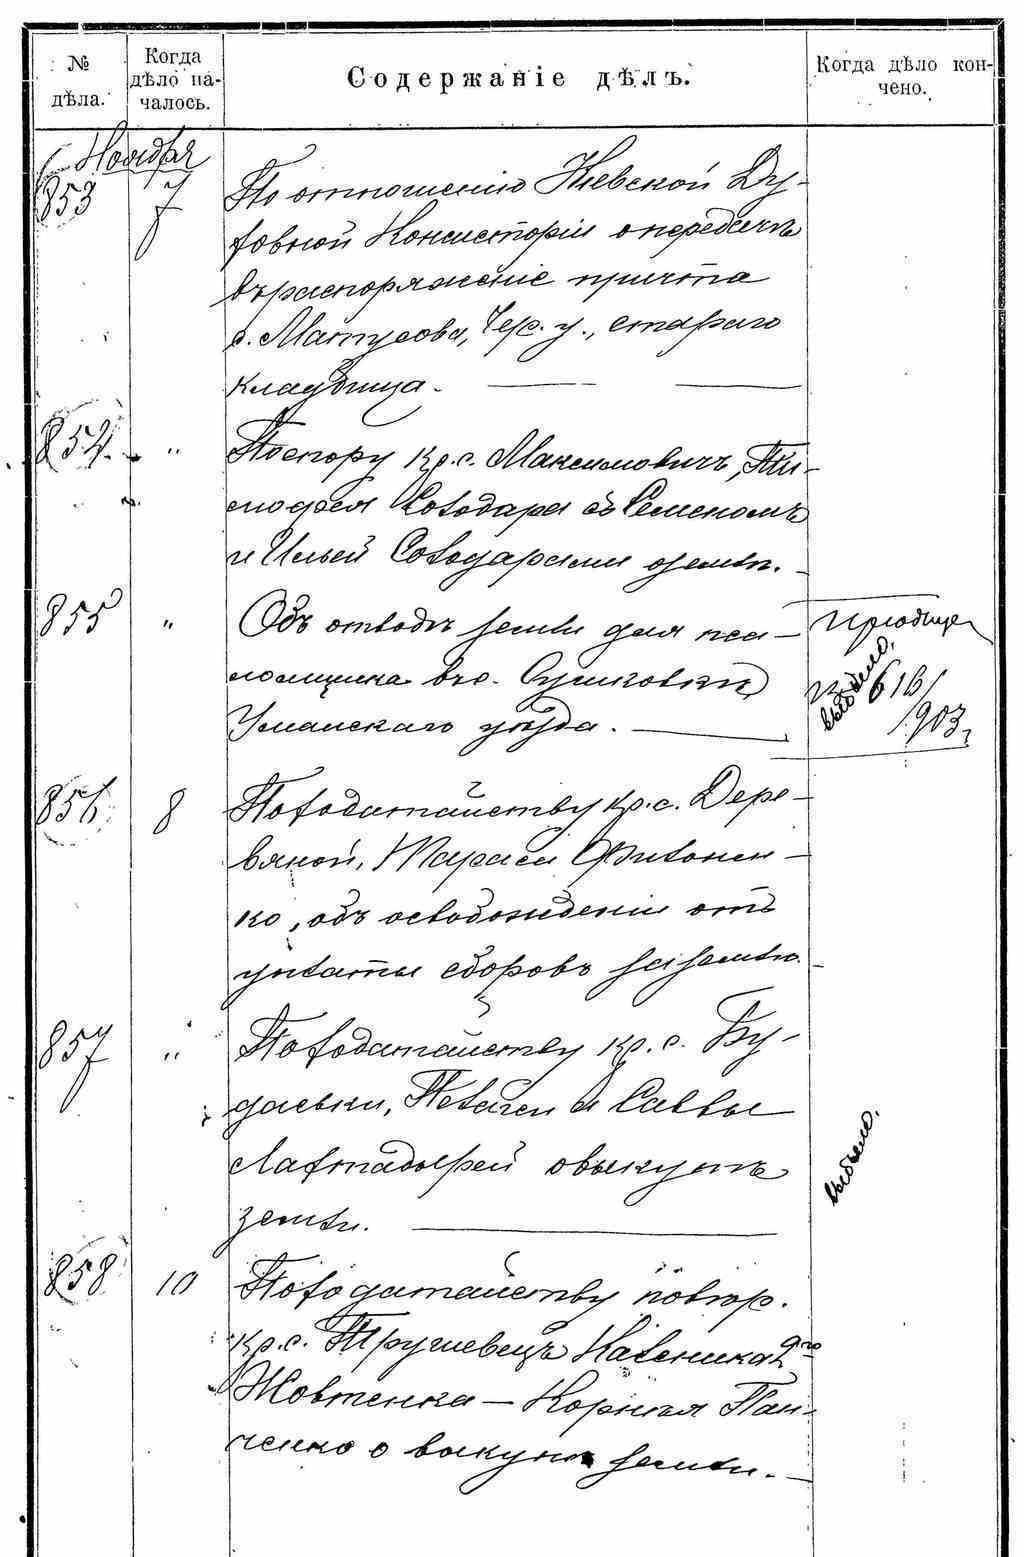 № дѣла.
Когда дѣло на-
чалось.
Содержаніе дѣлъ.
Когда дѣло кон-
чено.
Ноября
853 7 По отношенію Кіевской Ду-
ховной Консисторіи о передачѣ
въ распоряженіе причта
с. Матусова, Чер. у., стараго
кладбища.
854 " По спору кр. с. Максимовичъ, Ти-
мофея Солодаря съ Семеномъ
и Ильей Солодарями о землѣ.
855 " Объ отводѣ земли для пса-
ломщика въ с. Сушковкѣ,
Уманскаго уѣзда.
выбыло.
616/
903
856 8 По ходатайству кр. с. Дере-
вяной, Тараса Филонен-
ко, объ освобожденіи отъ
уплаты сборовъ за землю.
857 " По ходатайству кр. с. Бу-
даевки, Пелагеи и Саввы
Лахтадырей о выкупѣ
земли.
выбыло.
858 10 По ходатайству повѣр.
кр. с. Трушевецъ Каленика
Жовтенка — Корнѣя Пан-
ченко о выкупѣ земли.